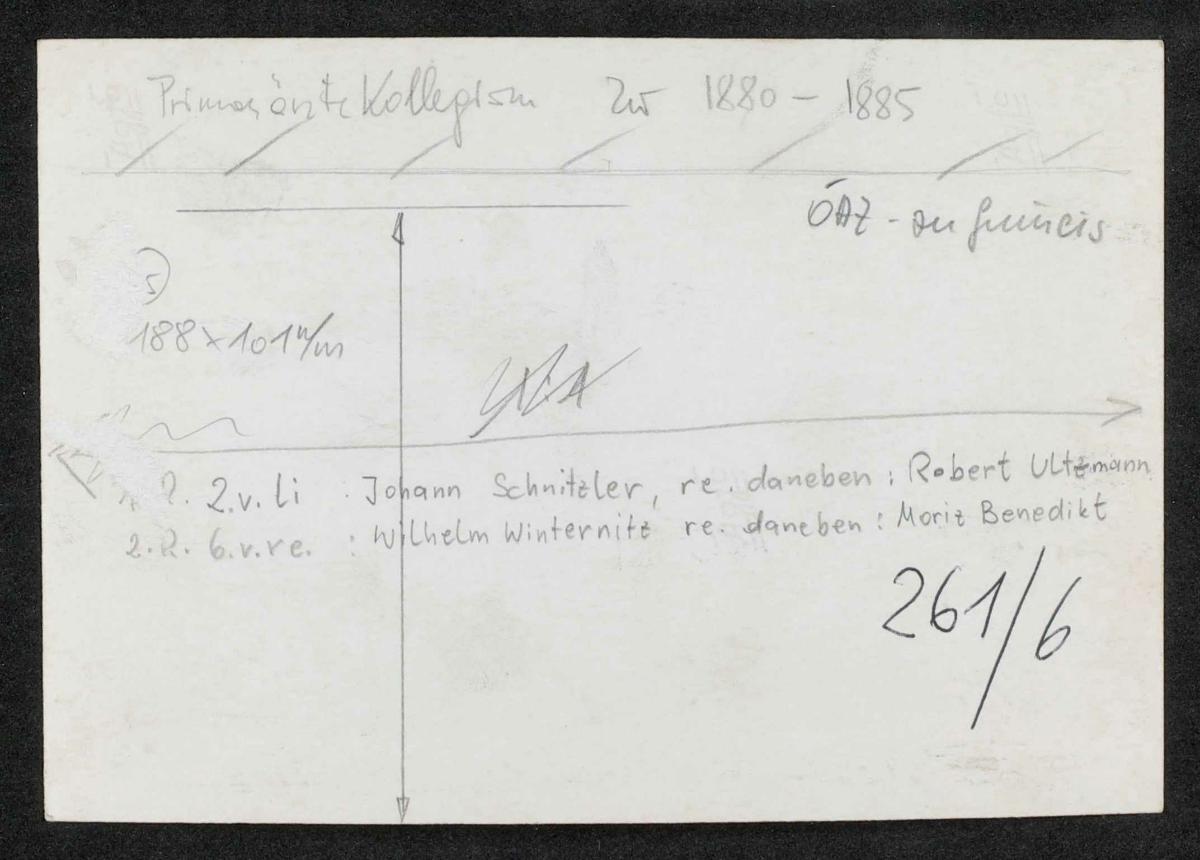 Primarärzte Kollegium Zw 1880 – 1885
ÖAZ -
5)
188 x 101 m/m
R. 2.v.li . Johann Schnitzler, re. daneben: Robert Ultzmann
2.R. 6.v.re. : Wilhelm Winternitz re. daneben: Moriz Benedikt
261/6